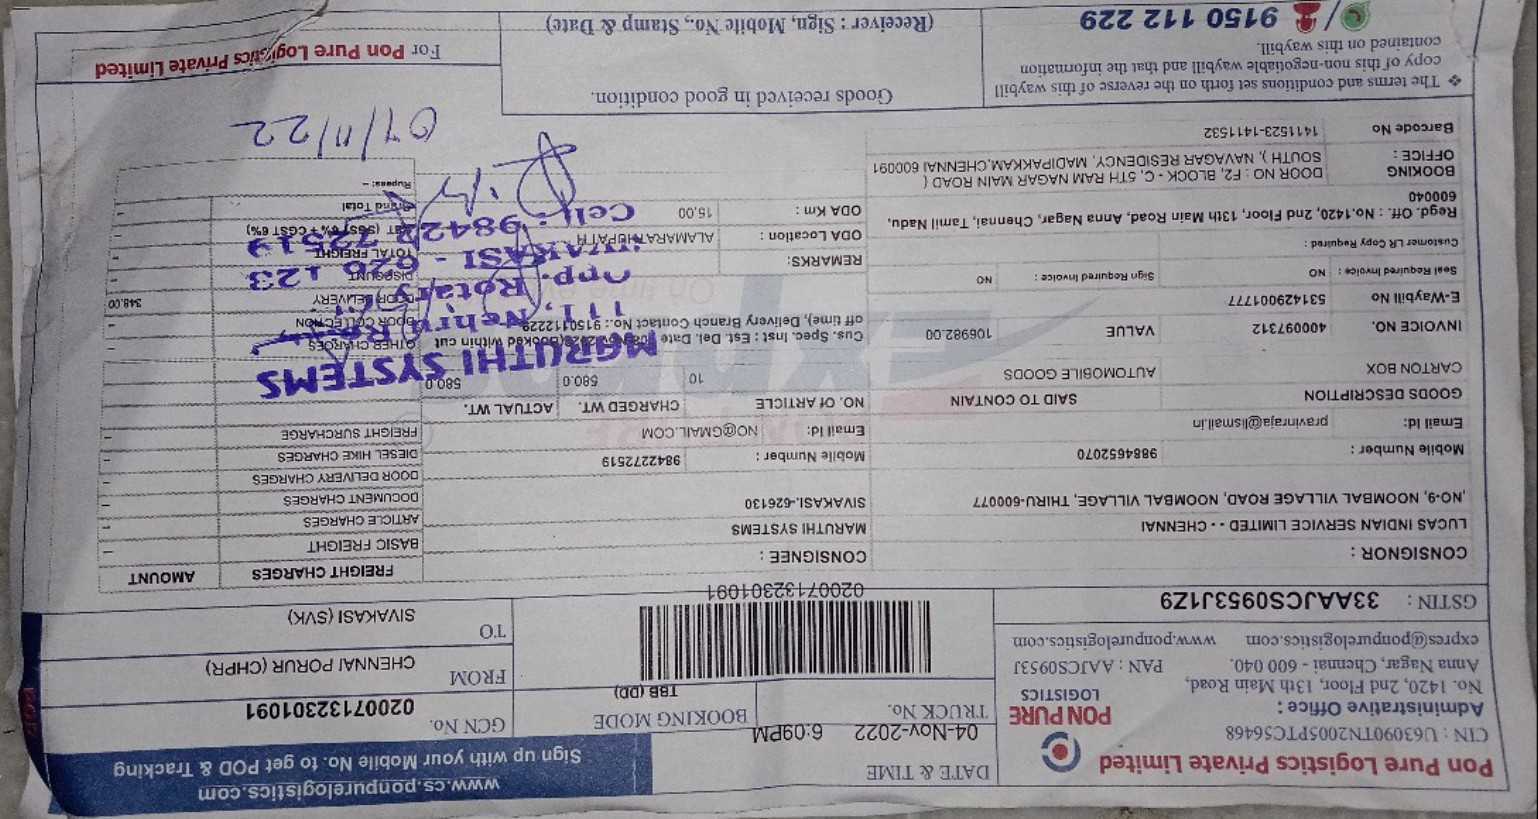 Pon Pure Logistics Private Limited
CIN : U63090TN2005PTC56468
Administrative Office :
No. 1420, 2nd Floor, 13th Main Road,
Anna Nagar, Chennai - 600 040.
PAN : AAJCS0953J
expres@ponpurelogistics.com www.ponpurelogistics.com
GSTIN : 33AAJCS0953J1Z9
PON PURE
LOGISTICS
DATE & TIME
04-Nov-2022 6:09PM
TRUCK No.
BOOKING MODE
TBB (DD)
02007132301091
www.cs.ponpurelogistics.com
Sign up with your Mobile No. to get POD & Tracking
GCN No. 02007132301091
FROM CHENNAI PORUR (CHPR)
TO SIVAKASI (SVK)
CONSIGNOR :
LUCAS INDIAN SERVICE LIMITED - - CHENNAI
,NO-9, NOOMBAL VILLAGE ROAD, NOOMBAL VILLAGE, THIRU-600077
Mobile Number : 9884652070
Email Id: pravinraja@lismail.in
CONSIGNEE :
MARUTHI SYSTEMS
SIVAKASI.-626130
Mobile Number : 9842272519
Email Id: NO@GMAIL.COM
FREIGHT CHARGES AMOUNT
BASIC FREIGHT –
ARTICLE CHARGES –
DOCUMENT CHARGES –
DOOR DELIVERY CHARGES –
DIESEL HIKE CHARGES –
FREIGHT SURCHARGE –
OTHER CHARGES
DOOR COLLECTION –
DOOR DELIVERY 348.00
DISCOUNT –
TOTAL FREIGHT –
(SGST 6% + CGST 6%) –
Grand Total –
Rupees: –
GOODS DESCRIPTION SAID TO CONTAIN NO. Of ARTICLE CHARGED WT. ACTUAL WT.
CARTON BOX AUTOMOBILE GOODS 10 580.0 580.0
INVOICE NO. 400097312 VALUE 106982.00
E-Waybill No 531429001777
Seal Required Invoice : NO Sign Required Invoice : NO
Customer LR Copy Required :
Cus. Spec. Inst : Est. Del. Date
(Booked within cut
off time), Delivery Branch Contact No.: 9150112229
REMARKS:
ODA Location : ALAMARATHUPATH
ODA Km : 15.00
Regd. Off. : No.1420, 2nd Floor, 13th Main Road, Anna Nagar, Chennai, Tamil Nadu,
600040
BOOKING OFFICE : DOOR NO : F2, BLOCK - C, 5TH RAM NAGAR MAIN ROAD (
SOUTH ), NAVAGAR RESIDENCY, MADIPAKKAM,CHENNAI 600091
Barcode No 1411523-1411532
MARUTHI SYSTEMS
111, Nehru Road,
Opp. Rotary
SIVAKASI - 626 123
Cell : 98422 72519
07/11/22
❖ The terms and conditions set forth on the reverse of this waybill
copy of this non-negotiable waybill and that the information
contained on this waybill.
9150 112 229
Goods received in good condition.
(Receiver : Sign, Mobile No., Stamp & Date)
For Pon Pure Logistics Private Limited